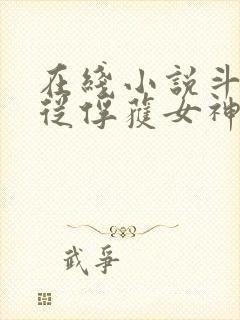 在綫小説斗
從俘獲女神
武爭